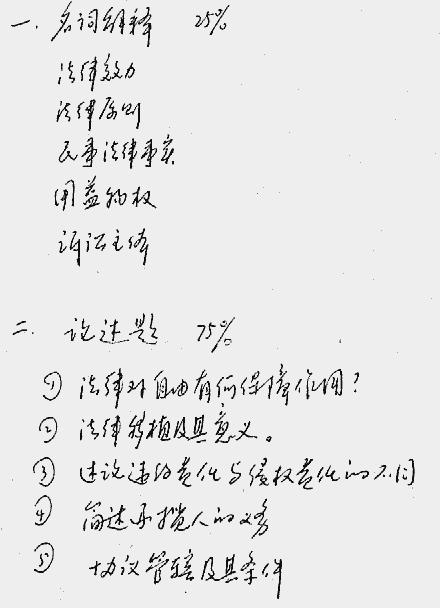 一. 名词解释 25%
法律效力
法律原则
民事法律事实
用益物权
诉讼主体
二. 论述题 75%
① 法律对自由有何保障作用?
② 法律移植及其意义。
③ 述论违约责任与侵权责任的不同
④ 简述承揽人的义务
⑤ 协议管辖及其条件